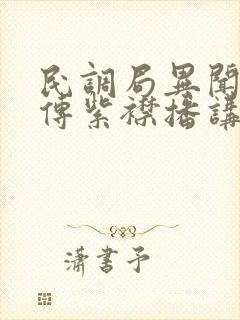 民調局異聞
傳紫襟播講
瀟書予